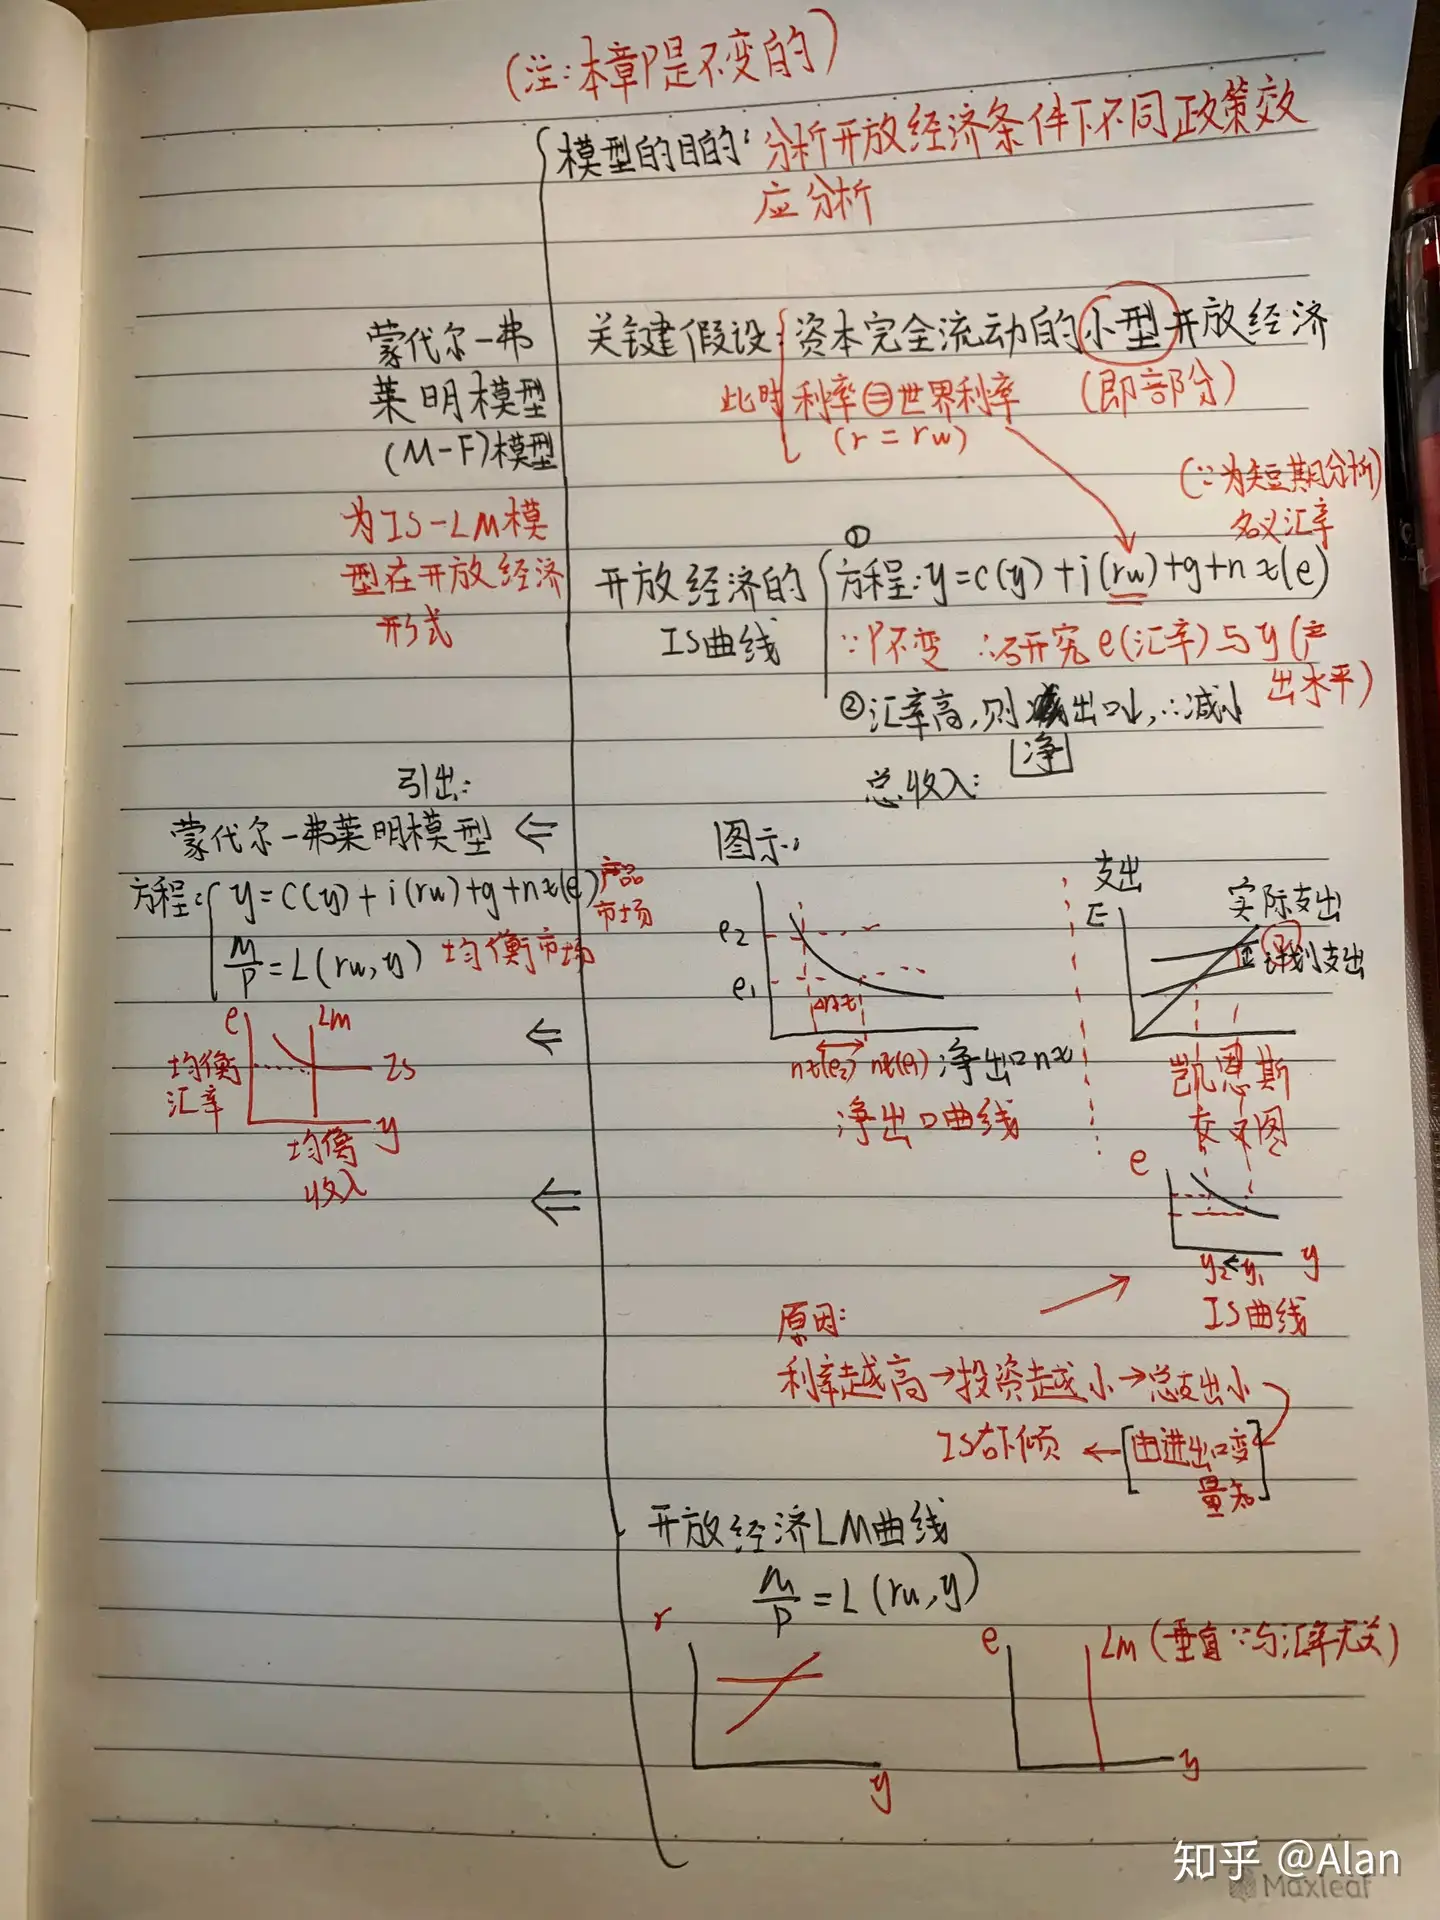 (注:本章P是不变的)
模型的目的:分析开放经济条件下不同政策效
应分析
蒙代尔-弗
莱明模型
(M-F)模型
为IS-LM模
型在开放经济
形式
关键假设:资本完全流动的小型开放经济
此时利率=世界利率
(即部分)
(r=rw)
(∵为短期分析)
名义汇率
开放经济的
IS曲线
①
方程:y=c(y)+i(rw)+g+nx(e)
∵P不变 ∴研究e(汇率)与y(产
出水平)
②汇率高,则出口小,∴减小
净
总收入:
引出:
蒙代尔-弗莱明模型 ⇐
方程:y=c(y)+i(rw)+g+nx(e) 产品
市场
M/P=L(rw,y) 均衡市场
e
LM
IS
均衡
汇率
y
均衡
收入
⇐
⇐
图示:
e2
e1
Δnx
nx(e2) nx(e1) 净出口nx
净出口曲线
支出
E
实际支出
计划支出
凯恩斯
交叉图
e
y2←y1 y
IS曲线
原因:
利率越高→投资越小→总支出小
IS右下倾←[由进出口变
量知]
开放经济LM曲线
M/P=L(rw,y)
r
y
e
LM(垂直∵与汇率无关)
y
知乎 @Alan
Maxleaf